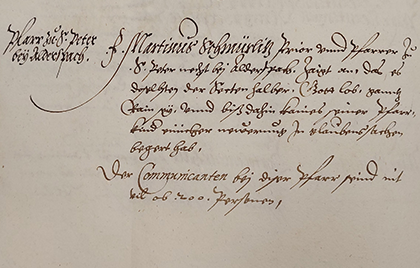 Pfarr zu S: Peter
bey Alderspach.
P. Martinus Schmyslitz Prior vnnd Pfarrer zu
S. Peter nechst bei Alderspach. Zaigt an, das es
der Secten halber. Gott lob. gantz
Rain sey. vnnd biß dahin kaines seiner Pfarr,
kind ainicher newerung in glaubenssachen
begert hab,
Der Communicanten bei diser Pfarr seind nit
vil ob 700. Personen,